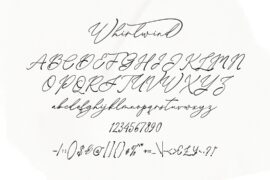 Whirlwind
ABCDEFGHIJKLMN
OPQRSTUVWXYZ
abcdefghijklmnopqrstuvwxyz
1234567890